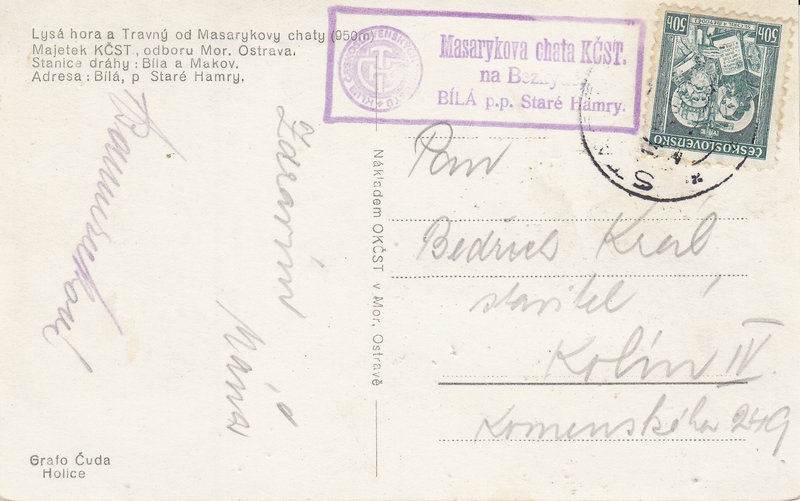 Lysá hora a Travný od Masarykovy chaty (950m)
Majetek KČST, odboru Mor. Ostrava.
Stanice dráhy : Bílá a Makov.
Adresa : Bílá, p Staré Hamry.
Masarykova chata KČST.
na
BÍLÁ p.p. Staré Hamry.
50h 50h
ČESKOSLOVENSKO
Nákladem OKČST v Mor. Ostravě
Pan
Bedřich Král
stavitel
Kolín IV.
Komenského 249
Grafo Čuda
Holice